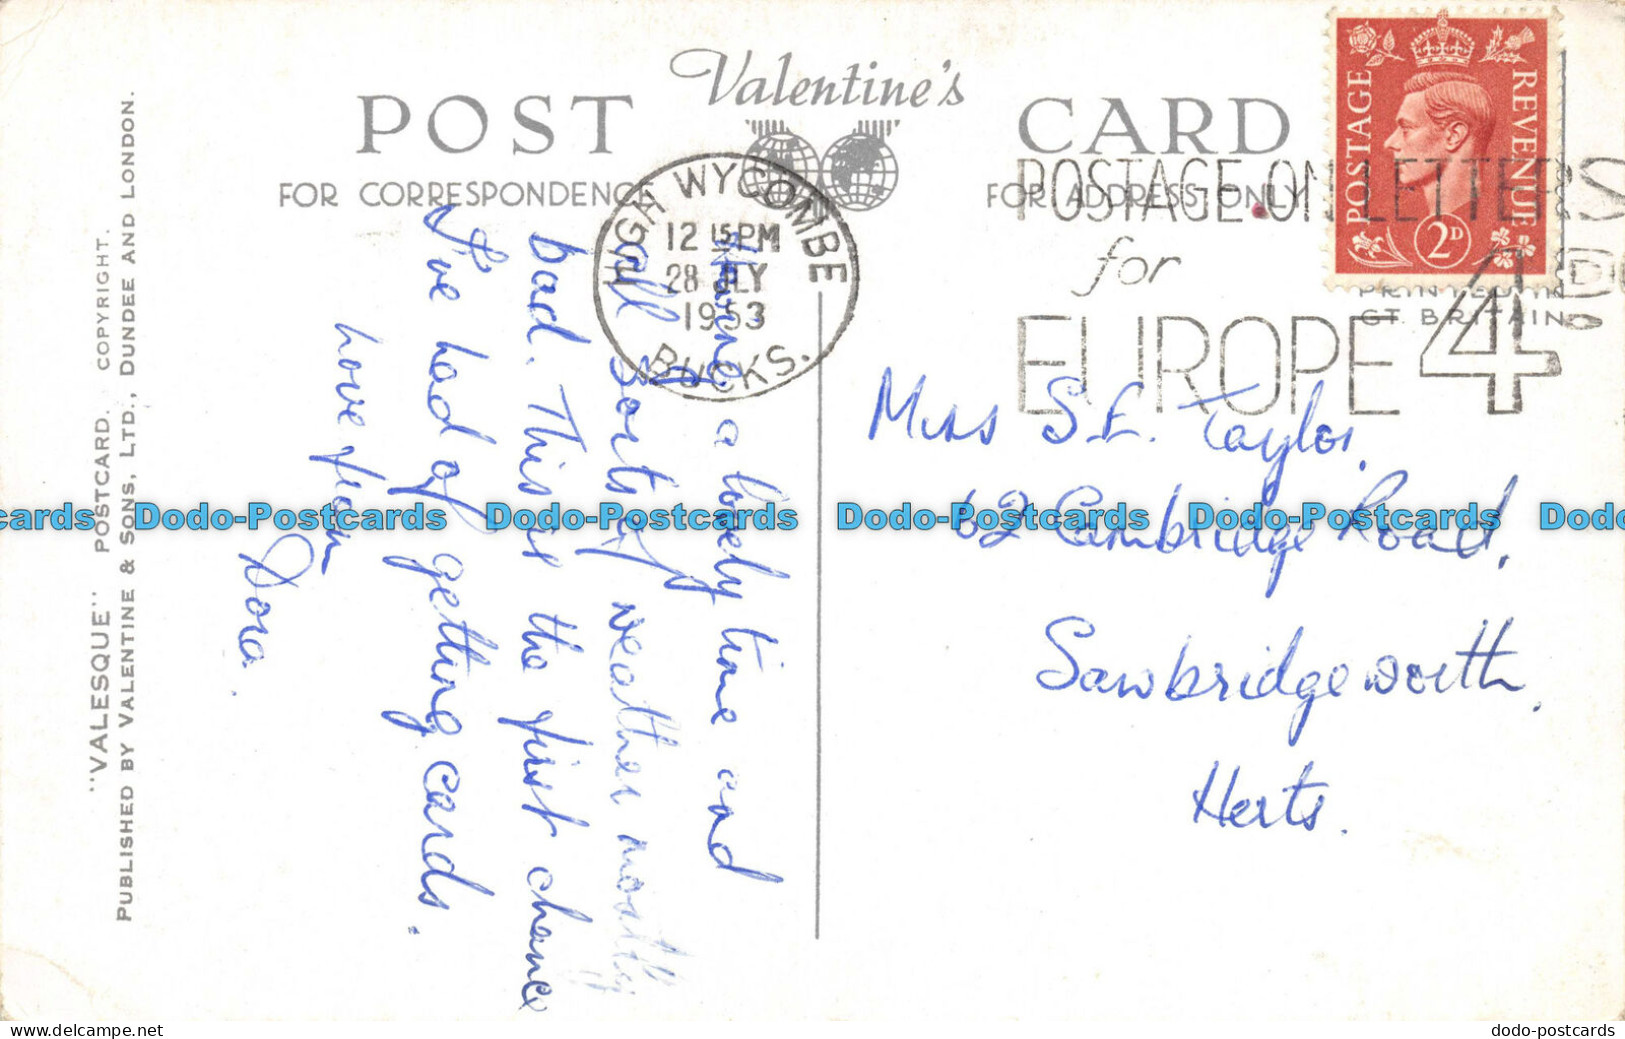 POST Valentine's CARD
FOR CORRESPONDENCE
FOR ADDRESS ONLY
HIGH WYCOMBE
12 15 PM
28 JLY
1953
BUCKS.
POSTAGE ON LETTERS
for
EUROPE 4D
POSTAGE REVENUE
2D
PRINTED IN
GT. BRITAIN
Having a lovely time and
all sorts of weather mostly
bad. This is the first chance
I've had of getting cards.
Love from
Dora.
Miss S.E. Taylor,
62 Cambridge Road,
Sawbridgeworth,
Herts.
"VALESQUE" POSTCARD. COPYRIGHT.
PUBLISHED BY VALENTINE & SONS, LTD., DUNDEE AND LONDON.
cards Dodo-Postcards Dodo-Postcards Dodo-Postcards Dodo-Postcards Dodo
dodo-postcards
dodo-postcards